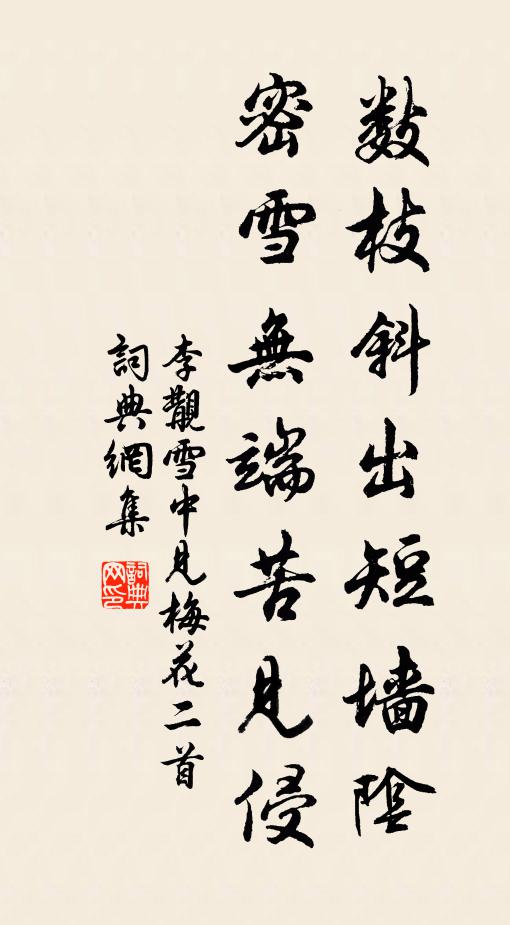 数枝斜出短墙陰
密雪無端苦見侵
李覯雪中見梅花二首
詞典網集
詞典网印